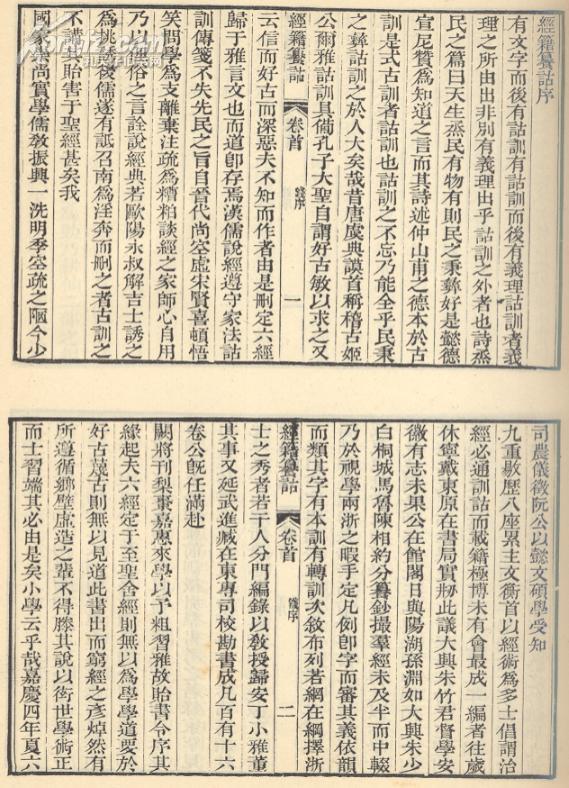 經籍籑詁序
有文字而後有詁訓有詁訓而後有義理詁訓者義
理之所由出非別有義理出乎詁訓之外者也詩烝
民之篇曰天生烝民有物有則民之秉彝好是懿德
宣尼贊爲知道之言而其詩述仲山甫之德本於古
訓是式古訓者詁訓也詁訓之不忘乃能全乎民秉
之彝詁訓之於人大矣哉昔唐虞典謨首稱稽古姬
公爾雅詁訓具備孔子大聖自謂好古敏以求之又
經籍籑詁 卷首 錢序 一
云信而好古而深惡夫不知而作者由是刪定六經
歸于雅言文也而道卽存焉漢儒說經遵守家法詁
訓傳箋不失先民之旨自晉代尚空虛宋賢喜頓悟
笑問學爲支離棄注疏爲糟粕談經之家師心自用
乃以俚俗之言詮說經典若歐陽永叔解吉士誘之
爲挑誘後儒遂有詆召南爲淫奔而刪之者古訓之
不講其貽害于聖經甚矣我
國家崇尚實學儒敎振興一洗明季空疏之陋今少
司農儀徵阮公以懿文碩學受知
九重敭歷八座累主文衡首以經術爲多士倡謂治
經必通訓詁而載籍極博未有會最成一編者往歲
休寧戴東原在書局實剏此議大興朱竹君督學安
徽有志未果公在館閣日與陽湖孫淵如大興朱少
白桐城馬魯陳相約分籑鈔撮羣經未及半而中輟
乃於視學兩浙之暇手定凡例卽字而審其義依韻
而類其字有本訓有轉訓次敘布列若網在綱擇浙
經籍籑詁 卷首 錢序 二
士之秀者若干人分門編錄以敎授歸安丁小雅董
其事又延武進臧在東專司校勘書成凡百有十六
卷公旣任滿赴
闕將刊棃棗嘉惠來學以予粗習雅故貽書令序其
緣起夫六經定于至聖舍經則無以爲學學道要於
好古蔑古則無以見道此書出而窮經之彥焯然有
所遵循鄉壁虛造之輩不得滕其說以衒世學術正
而士習端其必由是矣小學云乎哉嘉慶四年夏六